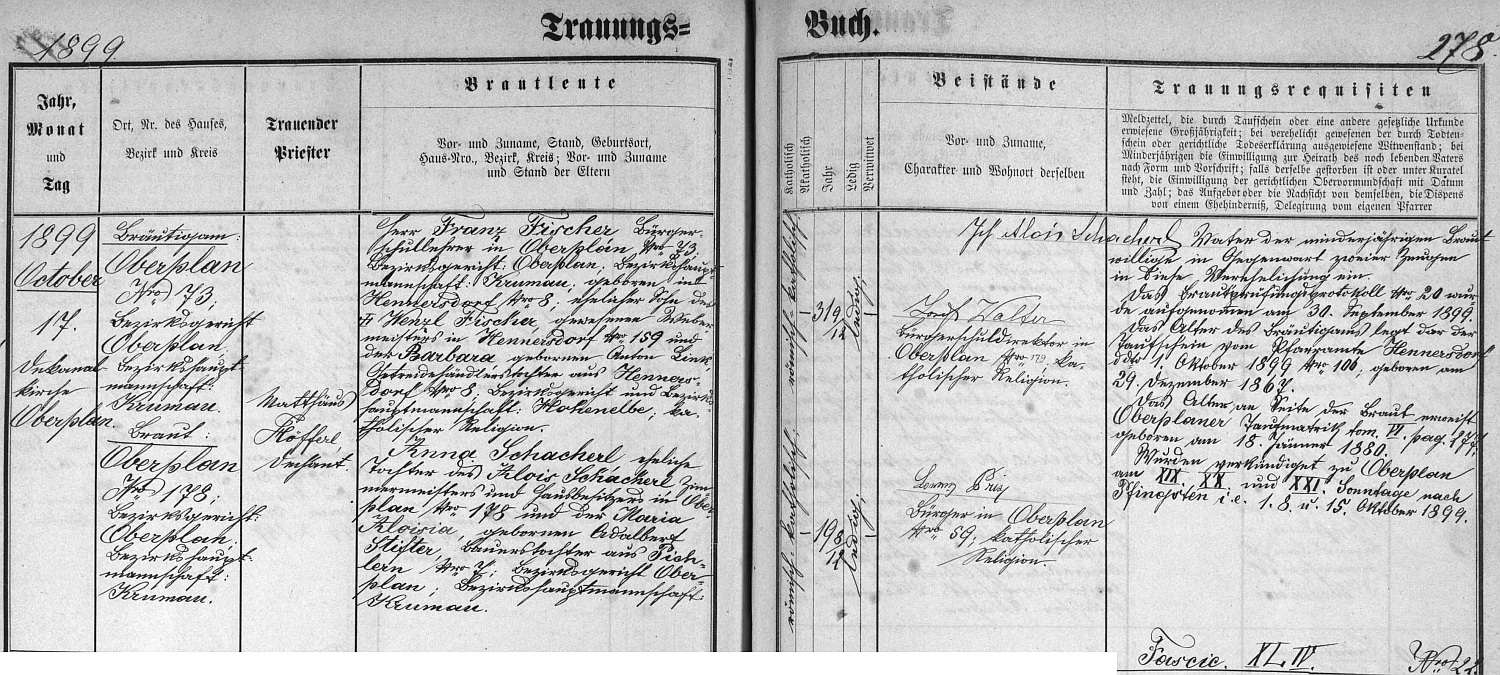 1899.
Trauungs=
Buch.
278.
Jahr,
Monat
und
Tag
Ort, Nr. des Hauses,
Bezirk und Kreis
Trauender
Priester
Brautleute
Vor- und Zuname, Stand, Geburtsort,
Haus-Nro., Bezirk, Kreis; Vor- und Zuname
und Stand der Eltern
Katholisch
Akatholisch
Jahr
Ledig
Verwitwet
Beistände
Vor- und Zuname,
Charakter und Wohnort derselben
Trauungsrequisiten
Meldzettel, die durch Taufschein oder eine andere gesetzliche Urkunde
erwiesene Großjährigkeit; bei verehelicht gewesenen der durch Todten-
schein oder gerichtliche Todeserklärung ausgewiesene Witwenstand; bei
Minderjährigen die Einwilligung zur Heirath des noch lebenden Vaters
nach Form und Vorschrift; falls derselbe gestorben ist oder unter Kuratel
steht, die Einwilligung der gerichtlichen Obervormundschaft mit Datum
und Zahl; das Aufgebot oder die Nachsicht von demselben, die Dispens
von einem Ehehinderniß, Delegirung vom eigenen Pfarrer
1899
October
17.
Dekanal
kirche
Oberplan
Bräutigam:
Oberplan
Nro 73;
Bezirksgericht
Oberplan,
Bezirkshaupt
mannschaft:
Krumau.
Braut:
Oberplan
Nro 178;
Bezirksgericht:
Oberplan;
Bezirkshaupt-
mannschaft:
Krumau.
Matthäus
Köfferl
Dechant.
Herr Franz Fischer Bürger-
schullehrer in Oberplan Nro 73;
Bezirksgericht: Oberplan, Bezirkshaupt
mannschaft: Krumau, geboren in
Hennersdorf Nro 8; ehelicher Sohn des
Wenzl Fischer, gewesenen Weber
meisters in Hennersdorf Nro 159 und
der Barbara gebornen Anton Link
Getreidehändlerstochter aus Henners-
dorf Nro 8; Bezirksgericht und Bezirks
hauptmannschaft: Hohenelbe; ka-
tholischer Religion.
Anna Schacherl eheliche
Tochter des Alois Schacherl Zim-
mermeisters und Hausbesitzers in Ober
plan Nro 178 und der Maria
Aloisia, gebornen Adalbert
Stifter, Bauerstochter aus Pich-
lern Nro 7; Bezirksgericht Ober-
plan; Bezirkshauptmannschaft:
Krumau.
römisch-katholisch
31 9/12
ledig;
römisch-katholisch;
19 8/12
ledig;
Walter
Bürgerschuldirektor in
Oberplan Nro 179, ka-
tholischer Religion.
Lorenz
Bürger in Oberplan
Nro 59; katholischer
Religion.
Ich Alois Schacherl Vater der minderjährigen Braut
willige in Gegenwart zweier Zeugen
in diese Verehelichung ein.
Das Brautprüfungsprotokoll Nro 20 wur-
de aufgenommen am 30. September 1899.
Das Alter des Bräutigams legt dar der
Taufschein vom Pfarramte Hennersdorf
ddto 1. Oktober 1899 Nro 100; geboren am
29. Dezember 1867.
Das Alter an Seite der Braut erweist
Oberplaner Taufmatrik tom. pag. 177;
geboren am 18. Jänner 1880.
Wurden verkündiget zu Oberplan
am XIX. XX. und XXI. Sonntage nach
Pfingsten i.e. 1. 8. u. 15. Oktober 1899.
Fascic. XLIV. Nro 22.